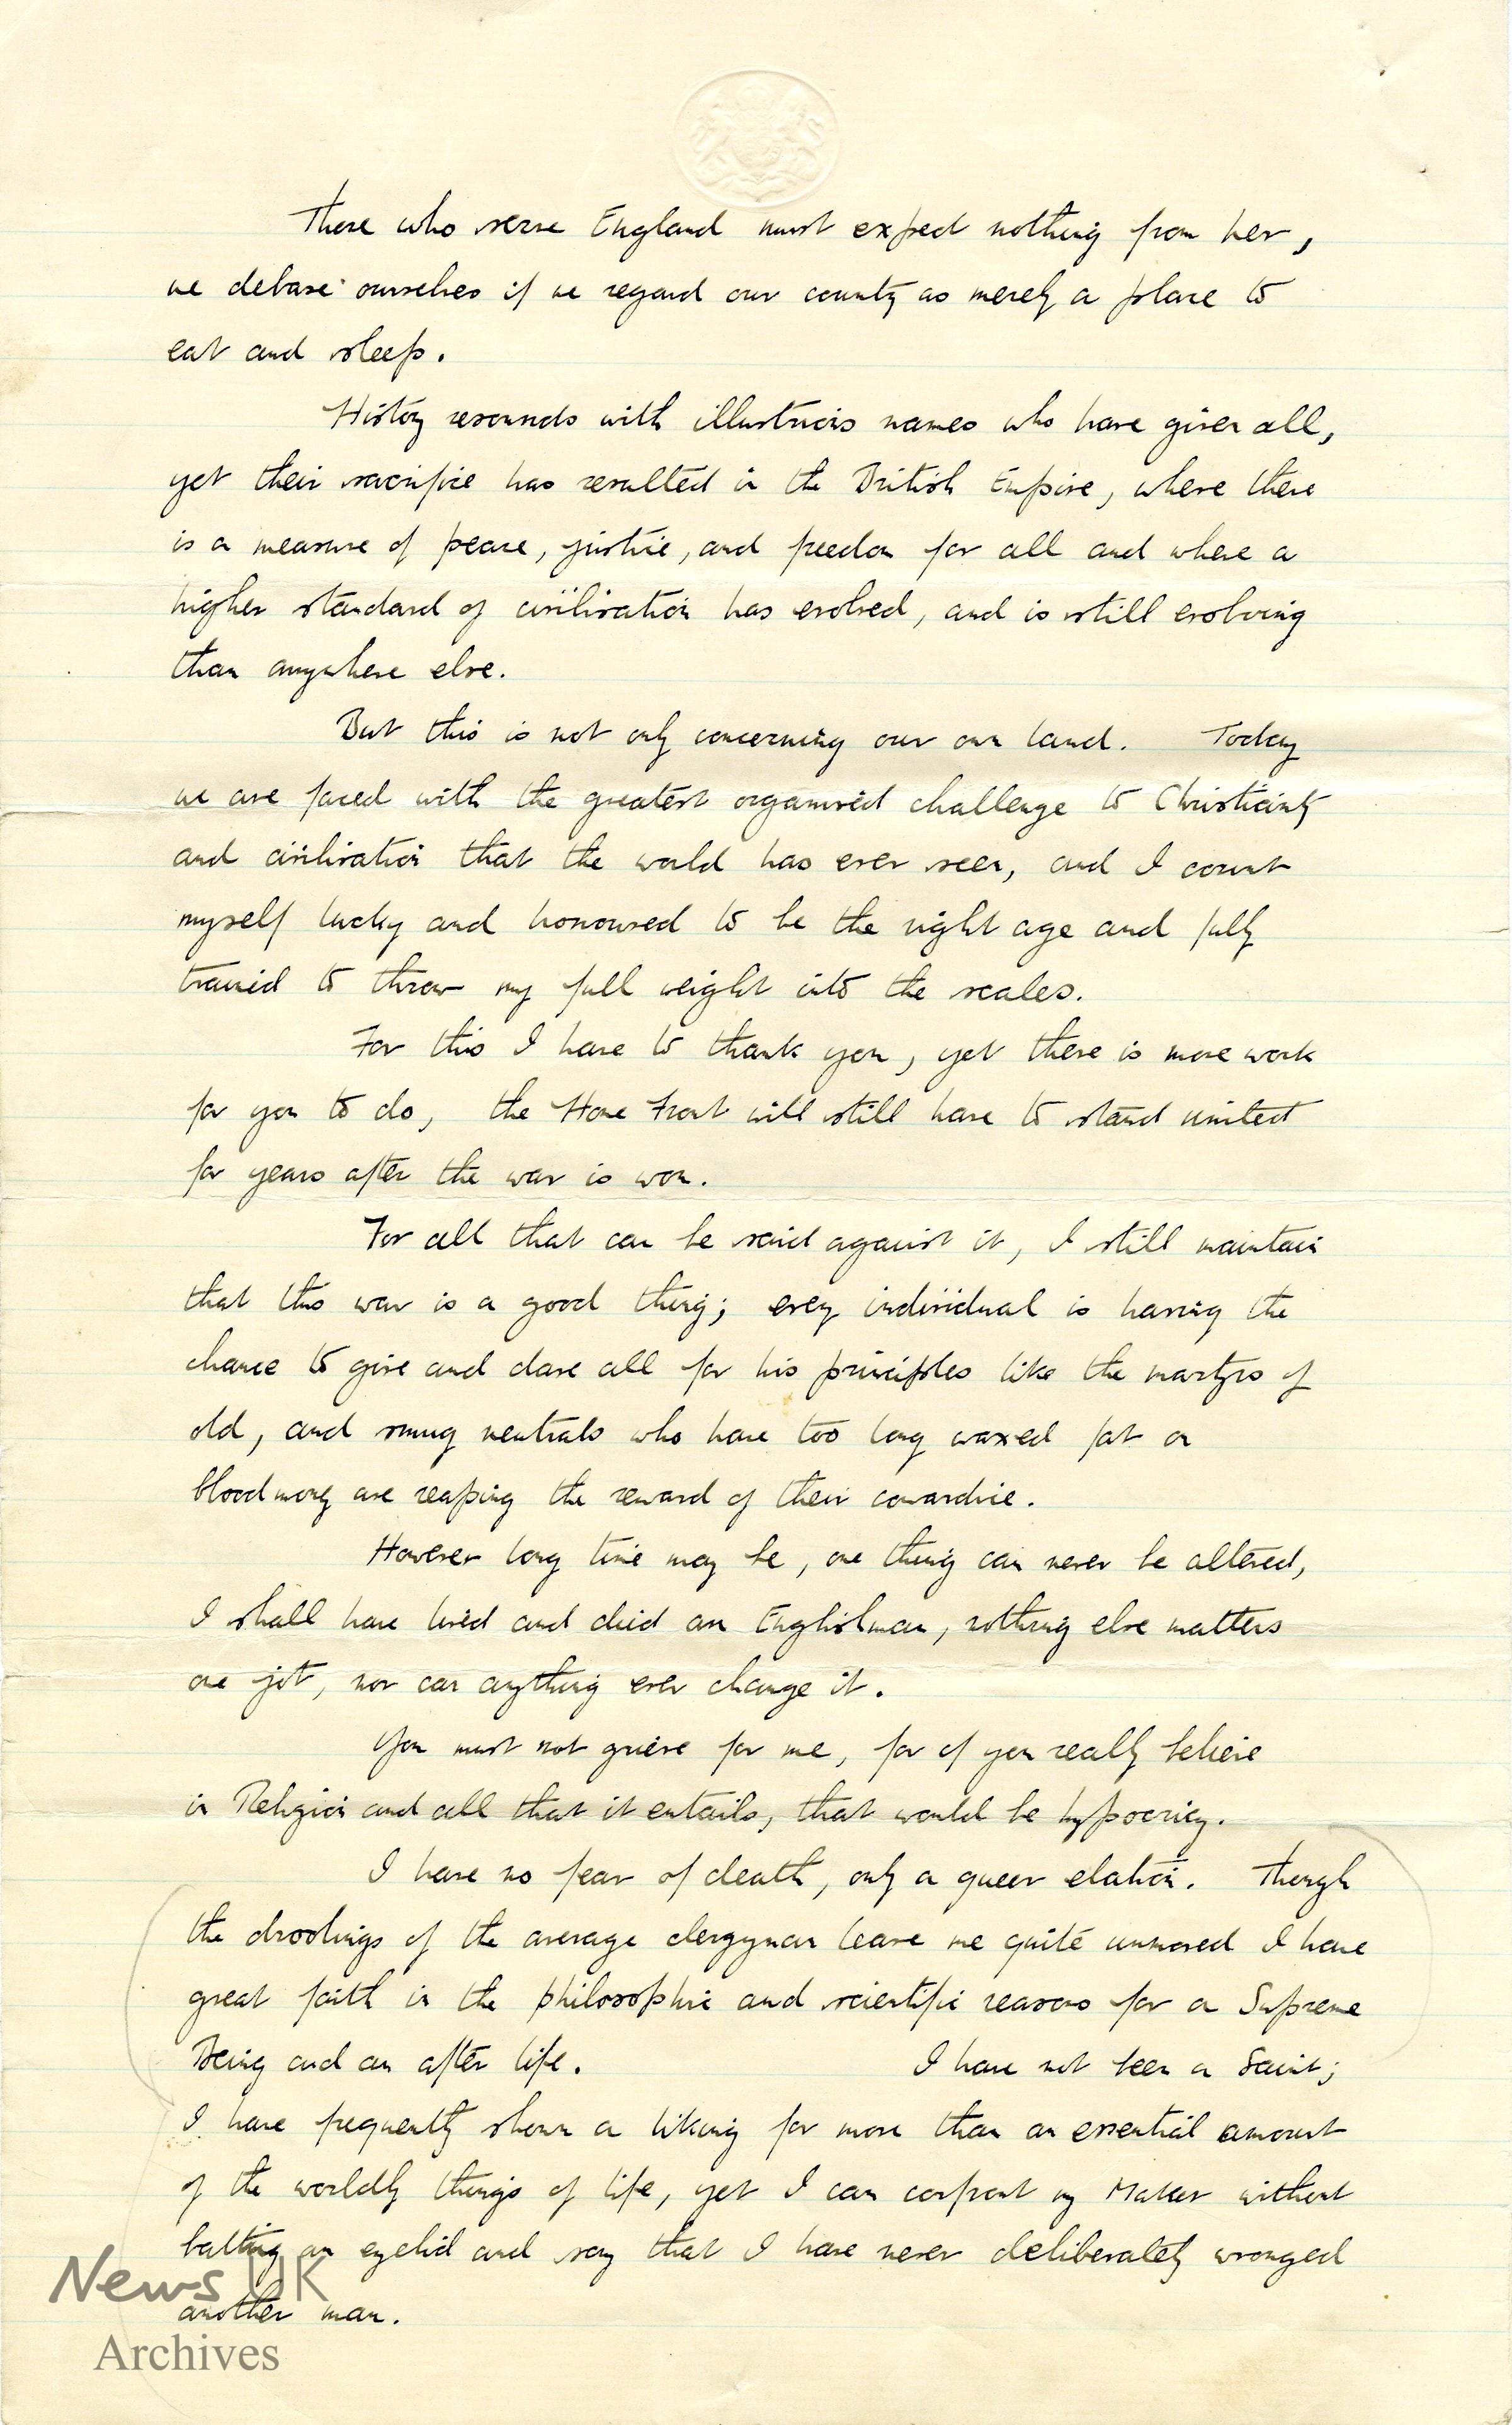 Those who serve England must expect nothing from her,
we debase ourselves if we regard our country as merely a place to
eat and sleep.
History resounds with illustrious names who have given all,
yet their sacrifice has resulted in the British Empire, where there
is a measure of peace, justice, and freedom for all and where a
higher standard of civilisation has evolved, and is still evolving
than anywhere else.
But this is not only concerning our own land. Today
we are faced with the greatest organised challenge to Christianity
and civilisation that the world has ever seen, and I count
myself lucky and honoured to be the right age and fully
trained to throw my full weight into the scales.
For this I have to thank you, yet there is more work
for you to do, the Home Front will still have to stand united
for years after the war is won.
For all that can be said against it, I still maintain
that this war is a good thing; every individual is having the
chance to give and dare all for his principles like the martyrs of
old, and smug neutrals who have too long waxed fat on
blood money are reaping the reward of their cowardice.
However long time may be, one thing can never be altered,
I shall have lived and died an Englishman, nothing else matters
one jot, nor can anything ever change it.
You must not grieve for me, for if you really believe
in Religion and all that it entails, that would be hypocricy.
I have no fear of death, only a queer elation. Though
the droolings of the average clergyman leave me quite unmoved I have
great faith in the philosophic and scientific reasons for a Supreme
Being and an after life. I have not been a Saint;
I have frequently shown a liking for more than an essential amount
of the worldly things of life, yet I can confront my Maker without
batting an eyelid and say that I have never deliberately wronged
another man.
News UK
Archives